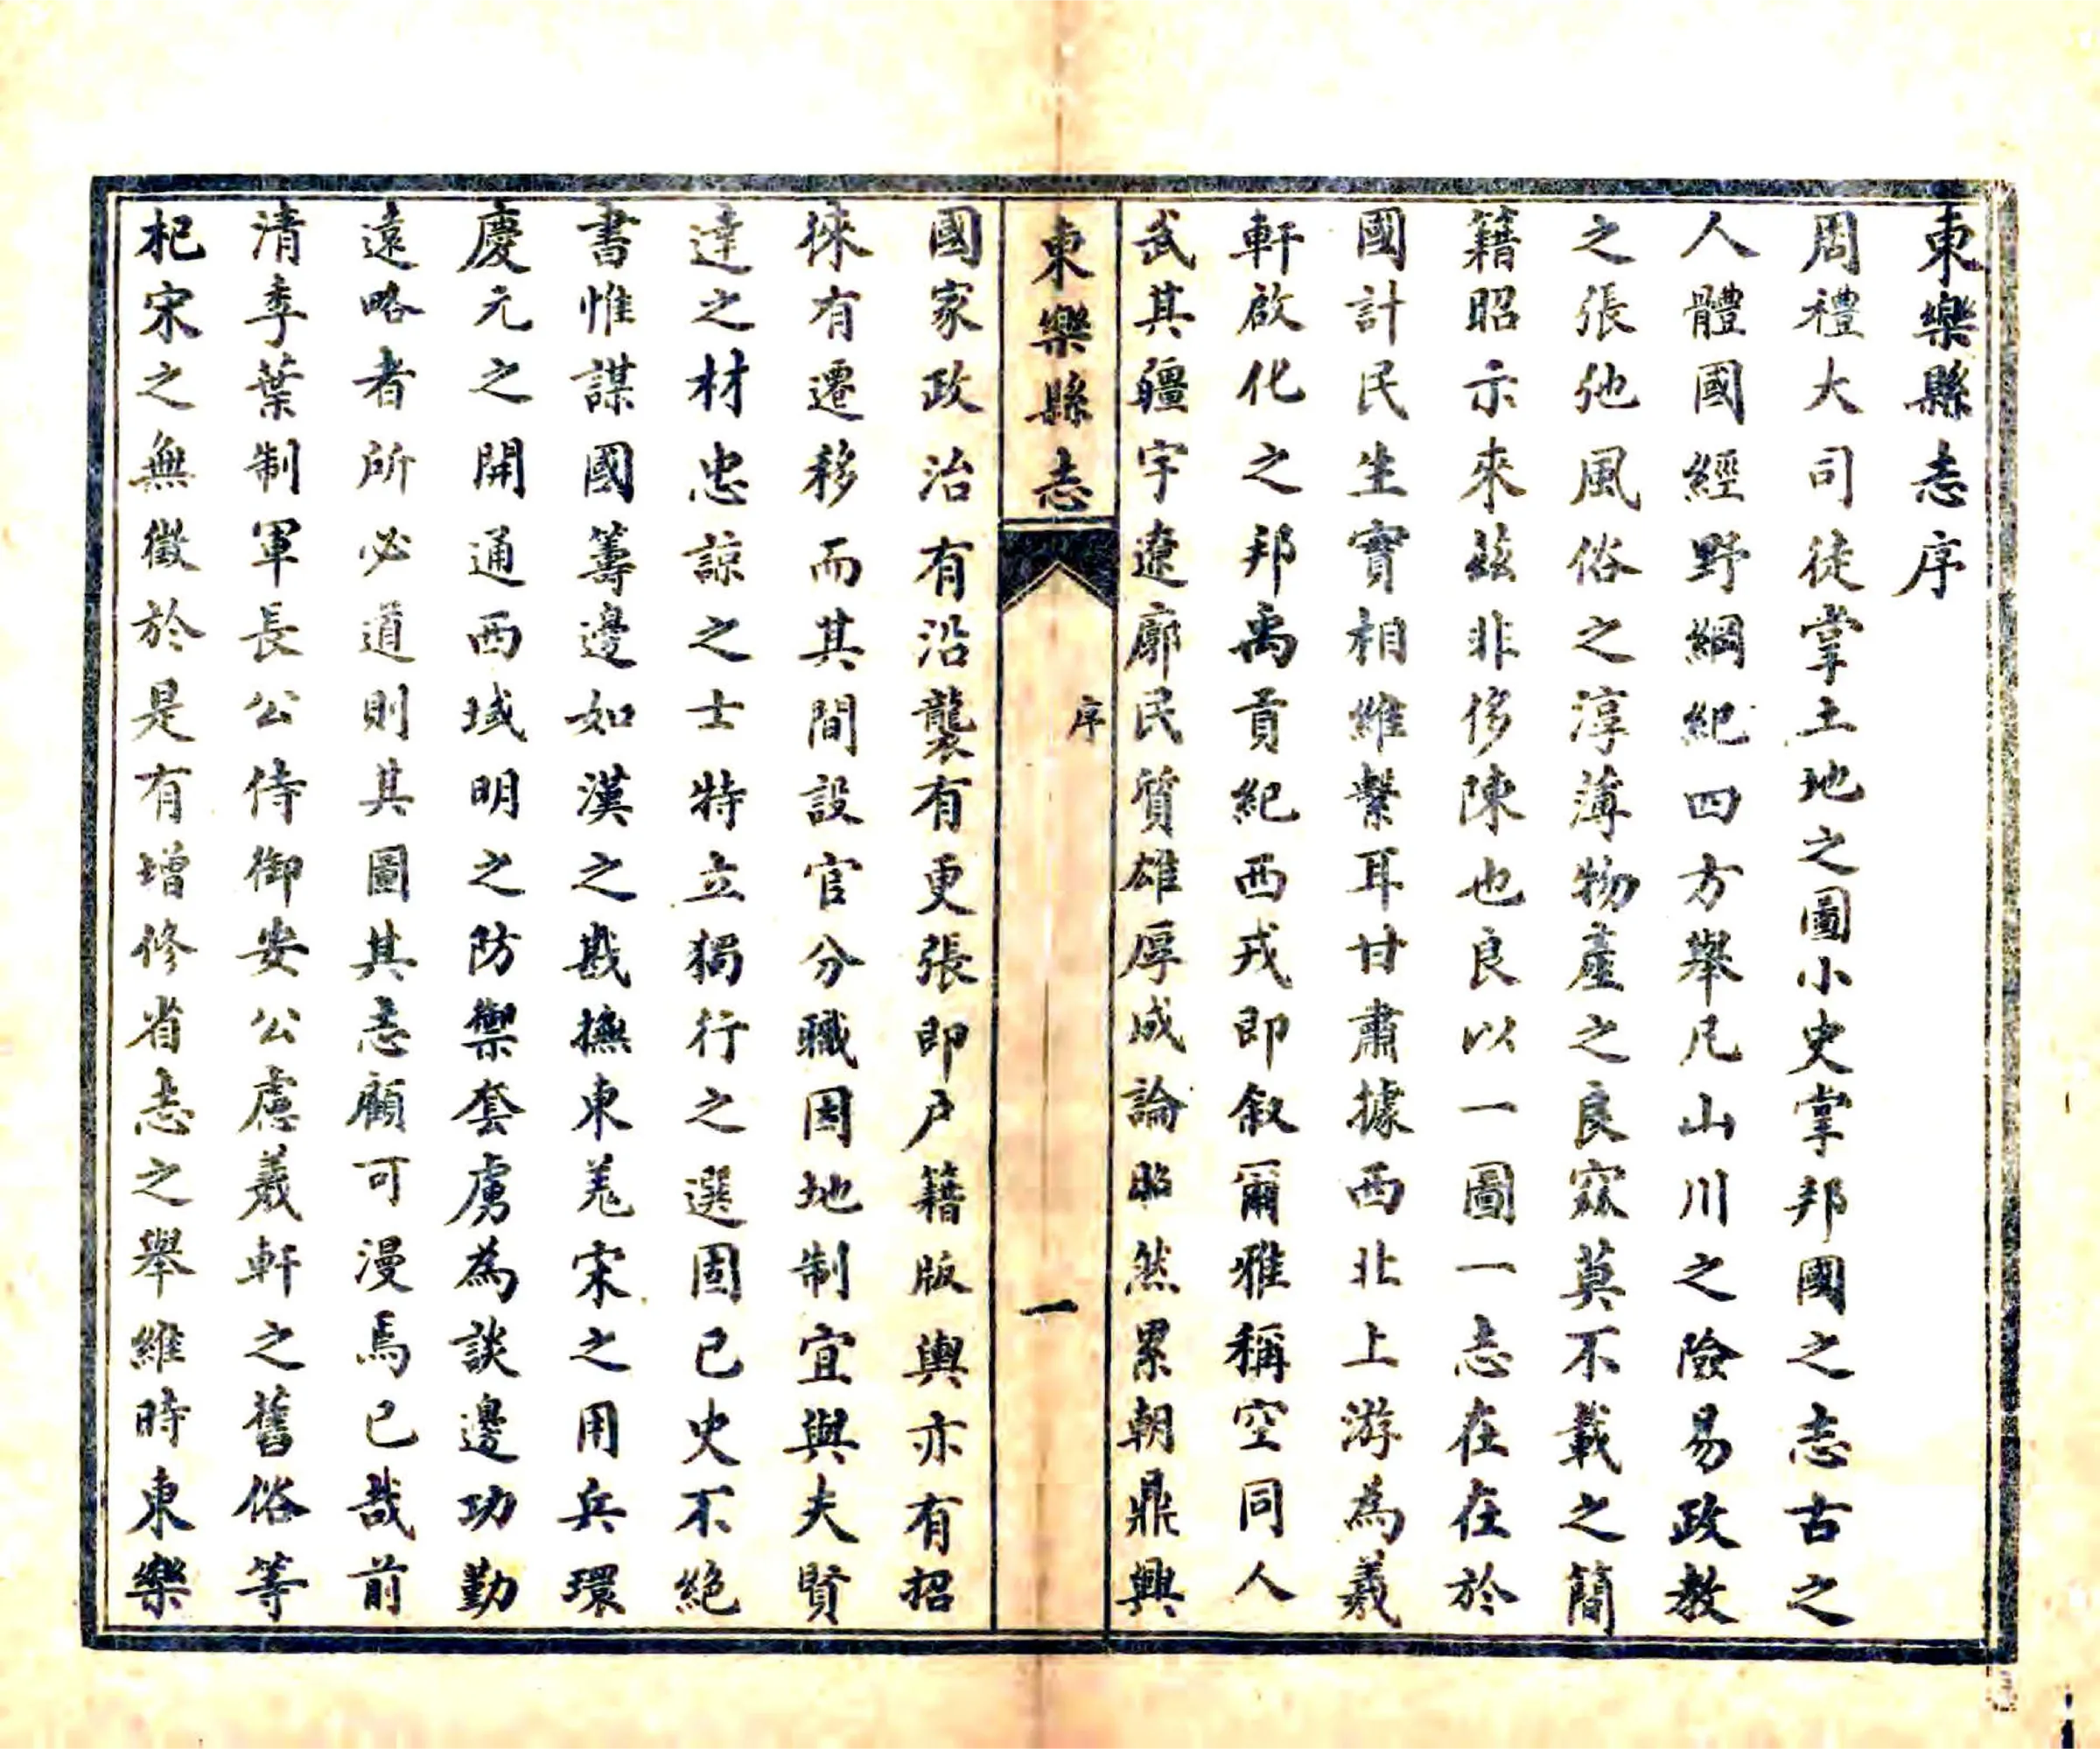 東樂縣志序
周禮大司徒掌土地之圖小史掌邦國之志古之
人體國經野綱紀四方舉凡山川之險易政教
之張弛風俗之淳薄物產之良窳莫不載之簡
籍昭示來茲非侈陳也良以一圖一志在在於
國計民生實相維繫耳甘肅據西北上游為羲
軒啟化之邦禹貢紀西戎即叙爾雅稱空同人
武其疆宇遼廓民質雄厚成論昭然累朝鼎興
東樂縣志
序
一
國家政治有沿襲有更張即户籍版輿亦有招
徠有遷移而其間設官分職因地制宜與夫賢
達之材忠諒之士特立獨行之選固已史不絕
書惟謀國籌邊如漢之戡撫東羌宋之用兵環
慶元之開通西域明之防禦套虜為談邊功勤
遠略者所必道則其圖其志顧可漫焉已哉前
清季葉制軍長公侍御安公慮羲軒之舊俗等
杞宋之無徵於是有增修省志之舉維時東樂